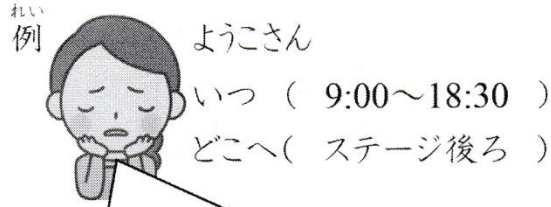 れい
例
ようこさん
いつ ( 9:00～18:30 )
どこへ( ステージ後ろ )